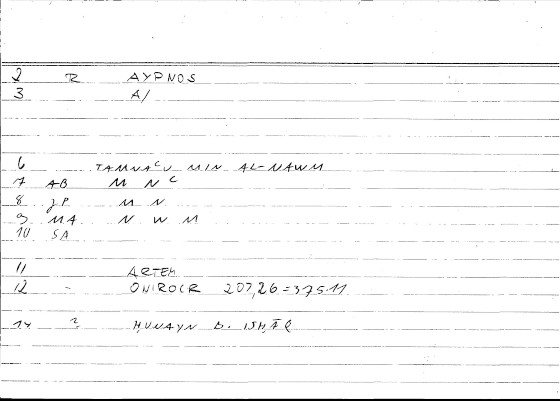 2 R AYPNOS
3 A/
6 TAMNAʿU MIN AL-NAWM
7 AB M N ʿ
8 JP M N
9 MA N W M
10 SA
11 ARTEM
12 - ONIROCR 207,26=375.11
14 ? ḤUNAYN B. ISḤĀQ